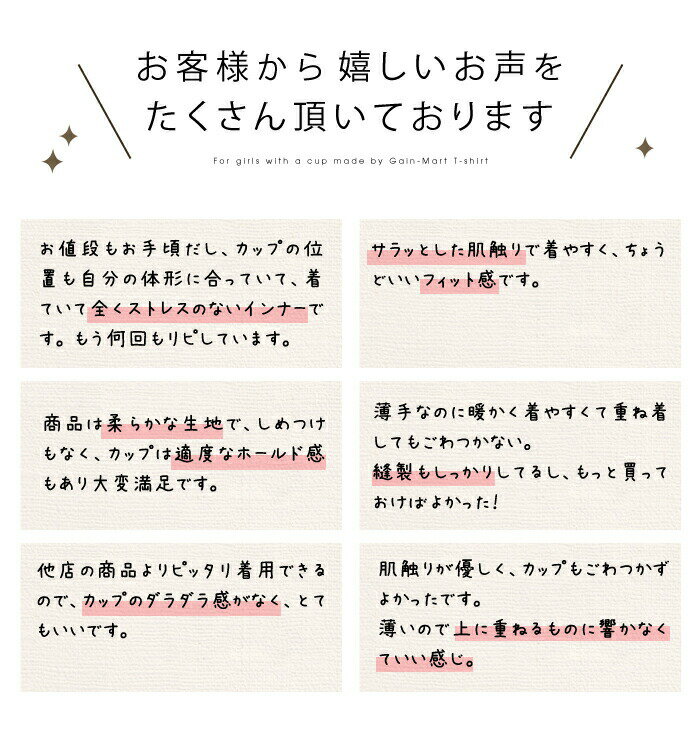 お客様から嬉しいお声を
たくさん頂いております
For girls with a cup made by Gain-Mart T-shirt
お値段もお手頃だし、カップの位
置も自分の体形に合っていて、着
ていて全くストレスのないインナーで
す。もう何回もリピしています。
サラッとした肌触りで着やすく、ちょう
どいいフィット感です。
商品は柔らかな生地で、しめつけ
もなく、カップは適度なホールド感
もあり大変満足です。
薄手なのに暖かく着やすくて重ね着
してもごわつかない。
縫製もしっかりしてるし、もっと買って
おけばよかった!
他店の商品よりピッタリ着用できる
ので、カップのダラダラ感がなく、とて
もいいです。
肌触りが優しく、カップもごわつかず
よかったです。
薄いので上に重ねるものに響かなく
ていい感じ。